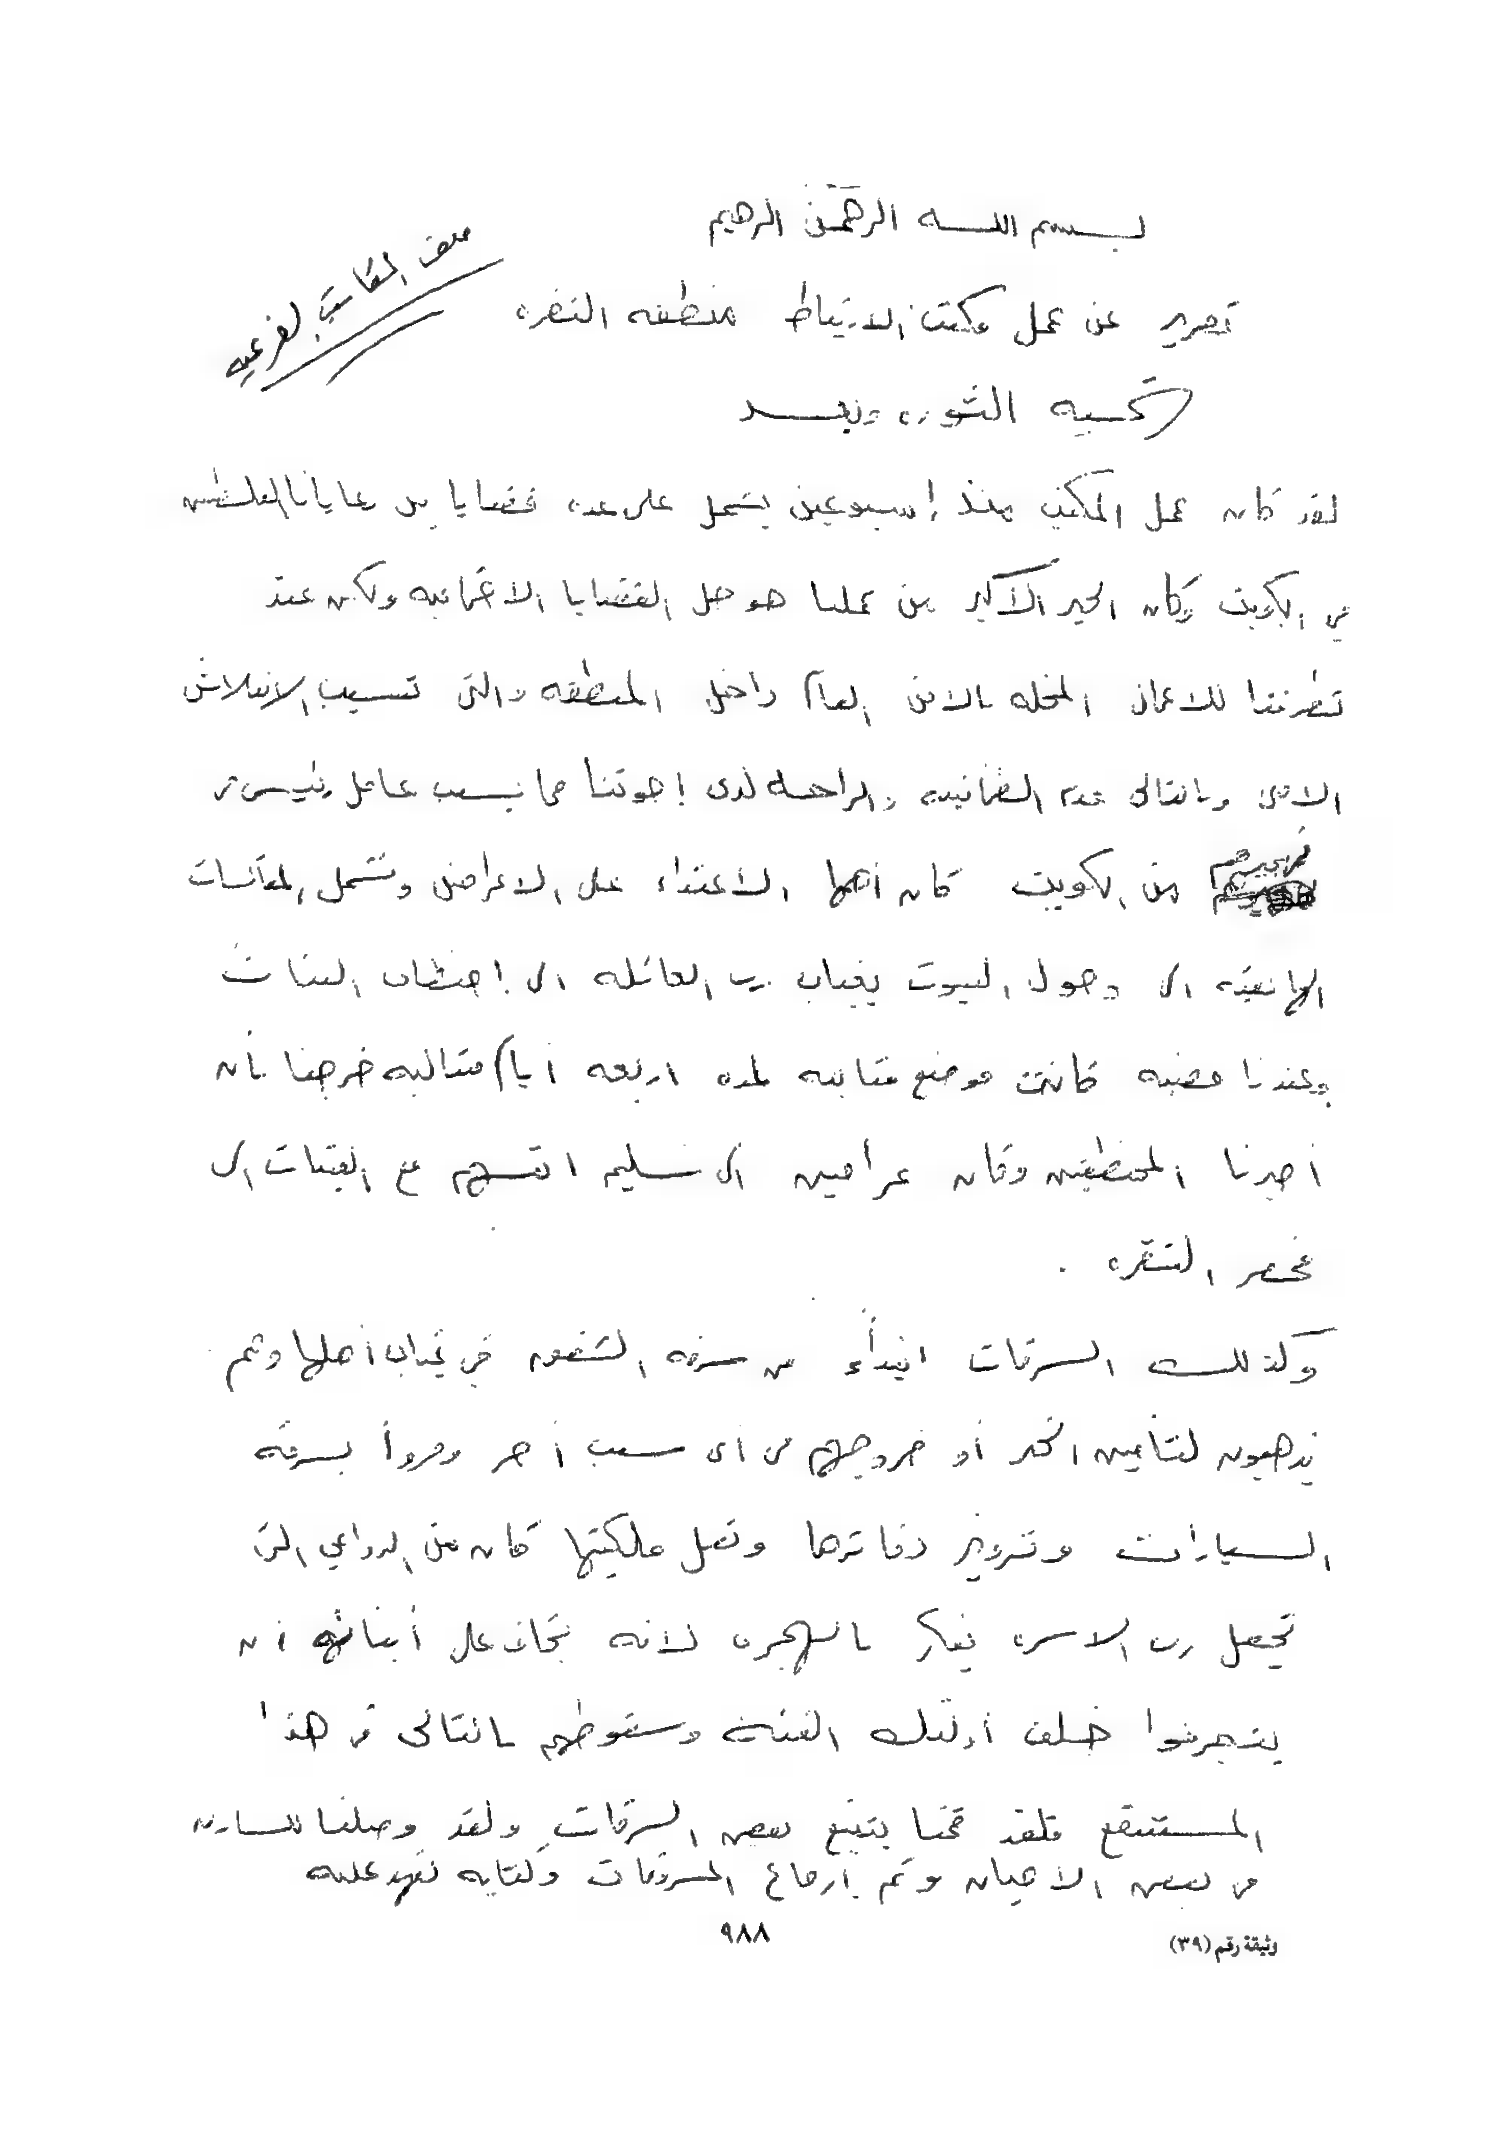 بسم اللـه الرحمن الرحيم
ملف المكاتب الفرعيه
تقرير عن عمل مكتب الارتباط منطقه النقره
تحيه الثوره وبعد
لقد كان عمل المكتب منذ إسبوعين يشمل على عده قضايا بين رعايانا الفلسطين
في الكويت وكان الحيز الأكبر من عملنا هو حل القضايا الاجتماعيه ولكن عند
تطرقنا للاعمال المخله بالامن العام داخل المنطقه والتي تسبب الانفلاش
الامني وبالتالي عدم الطمأنينه والراحه لدى إخوتنا مما يسبب عامل رئيسي في
تهجيرهم من الكويت كان أهمها الأعتداء على الاعراض وتشمل المعاكسات
الهاتفيه الى دخول البيوت بغياب رب العائله الى إختطاف البنات
وعندنا قضيه كانت موضع متابعه لمده اربعه ايام متتاليه خرجنا بأن
أجبرنا المختطفين وكان عراقيين الى تسليم انفسهم مع الفتيات الى
مخفر النقره .
وكذلك السرقات ابتداء من سرقه الشقق في غياب أهلها وهم
يذهبون لتأمين الخبز أو خروجهم من أي سبب أخر ومروراً بسرقه
السيارات وتزوير دفاترها ونقل ملكيتها كان من الدواعي التي
تجعل رب الاسره يفكر بالهجره لانه يخاف على أبنائه أن
ينجرفوا خلف أولئك الفئه وسقوطهم بالتالي في هذا
المستنقع فلقد قمنا بتتبع بعض السرقات ولقد وصلنا للسارق
في بعض الاحيان وتم إرجاع المسروقات وكتابه تعهد عليه
وثيقة رقم (٣٩)
٩٨٨